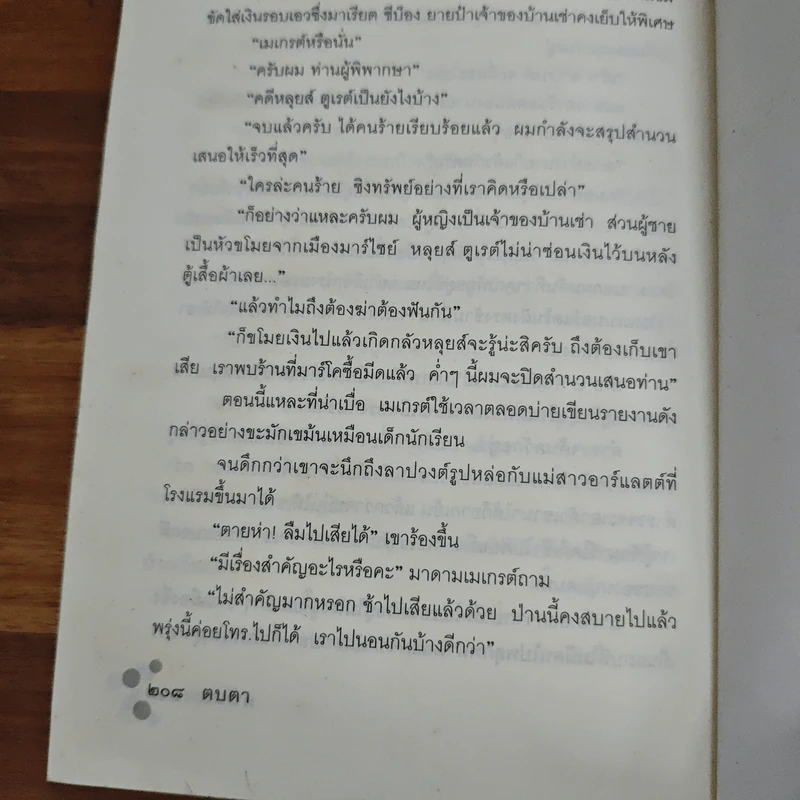 ขัดใส่เงินรอบเอวซึ่งมาเรียต ชีบ๋อง ยายป้าเจ้าของบ้านเช่าคงเย็บให้พิเศษ
“เมเกรต์หรือนั่น”
“ครับผม ท่านผู้พิพากษา”
“คดีหลุยส์ ตูเรต์เป็นยังไงบ้าง”
“จบแล้วครับ ได้คนร้ายเรียบร้อยแล้ว ผมกำลังจะสรุปสำนวน
เสนอให้เร็วที่สุด”
“ใครล่ะคนร้าย ชิงทรัพย์อย่างที่เราคิดหรือเปล่า”
“ก็อย่างว่าแหละครับผม ผู้หญิงเป็นเจ้าของบ้านเช่า ส่วนผู้ชาย
เป็นหัวขโมยจากเมืองมาร์ไซย์ หลุยส์ ตูเรต์ไม่น่าซ่อนเงินไว้บนหลัง
ตู้เสื้อผ้าเลย...”
“แล้วทำไมถึงต้องฆ่าต้องฟันกัน”
“ก็ขโมยเงินไปแล้วเกิดกลัวหลุยส์จะรู้น่ะสิครับ ถึงต้องเก็บเขา
เสีย เราพบร้านที่มาร์โคซื้อมีดแล้ว ค่ำๆ นี้ผมจะปิดสำนวนเสนอท่าน”
ตอนนี้แหละที่น่าเบื่อ เมเกรต์ใช้เวลาตลอดบ่ายเขียนรายงานดัง
กล่าวอย่างขะมักเขม้นเหมือนเด็กนักเรียน
จนดึกกว่าเขาจะนึกถึงลาปวงต์รูปหล่อกับแม่สาวอาร์แลตต์ที่
โรงแรมขึ้นมาได้
“ตายห่า! ลืมไปเสียได้” เขาร้องขึ้น
“มีเรื่องสำคัญอะไรหรือคะ” มาดามเมเกรต์ถาม
“ไม่สำคัญมากหรอก ช้าไปเสียแล้วด้วย ป่านนี้คงสบายไปแล้ว
พรุ่งนี้ค่อยโทร.ไปก็ได้ เราไปนอนกันบ้างดีกว่า”
๒๐๘ ตบตา